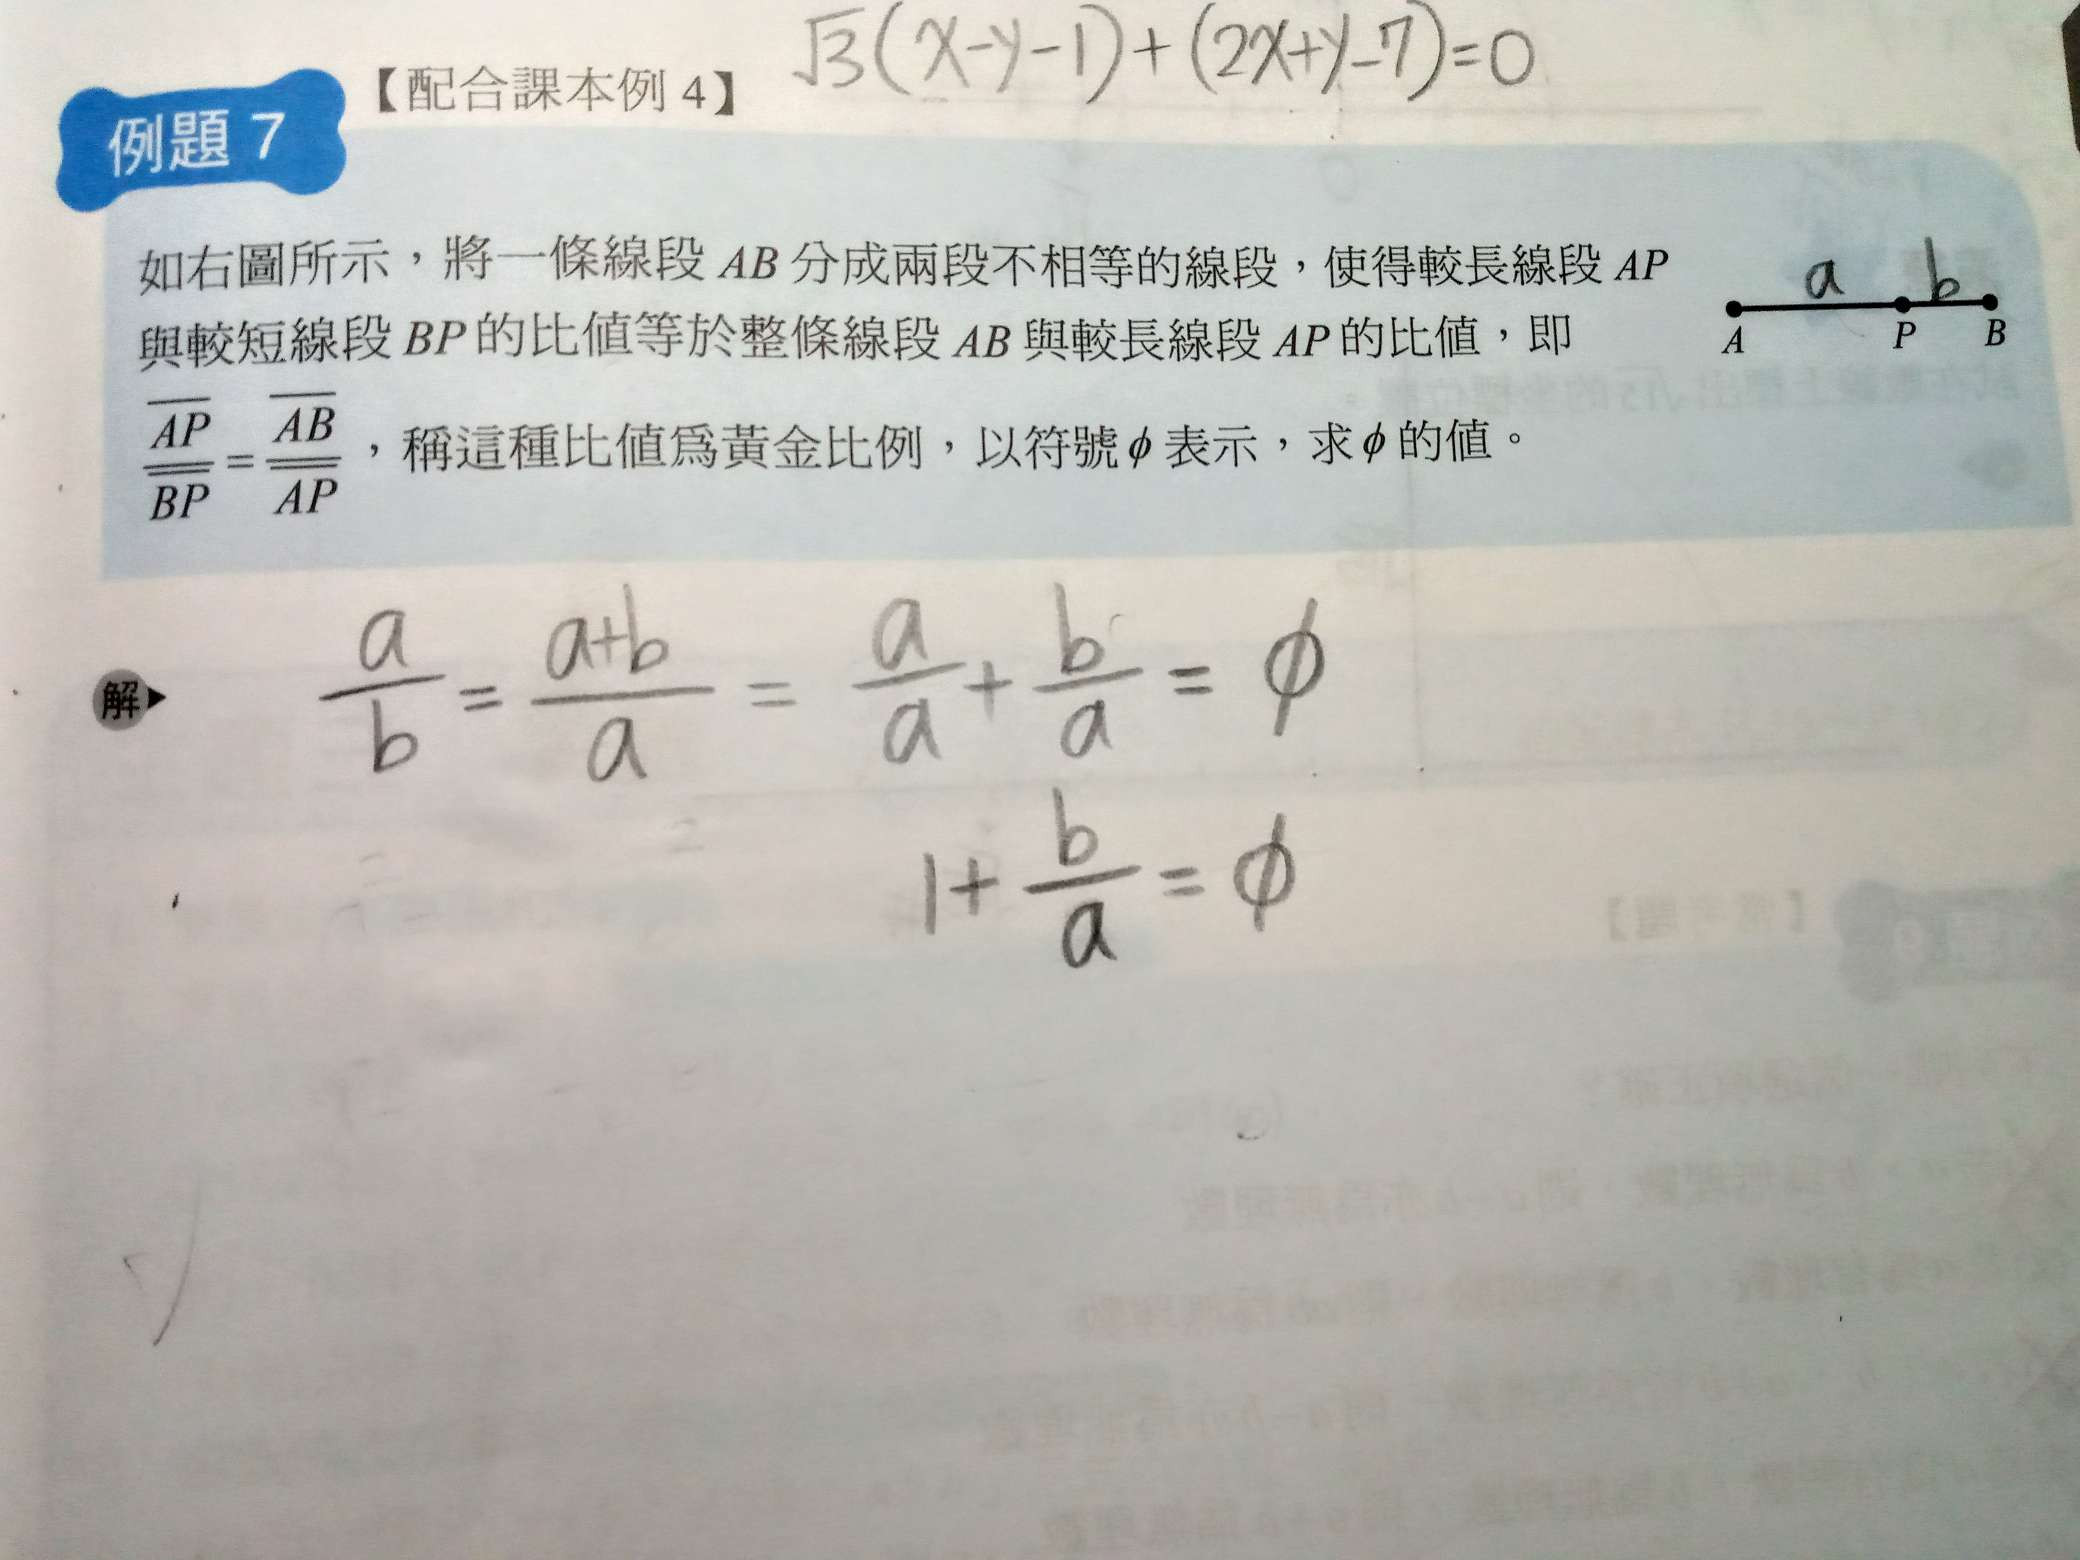 √3(x-y-1)+(2x+y-7)=0
例題7 【配合課本例 4】
如右圖所示，將一條線段 AB 分成兩段不相等的線段，使得較長線段 AP
與較短線段 BP 的比值等於整條線段 AB 與較長線段 AP 的比值，即
AP/BP = AB/AP，稱這種比值為黃金比例，以符號 φ 表示，求 φ 的值。
a b
A P B
解 a/b = a+b/a = a/a + b/a = φ
1+ b/a = φ